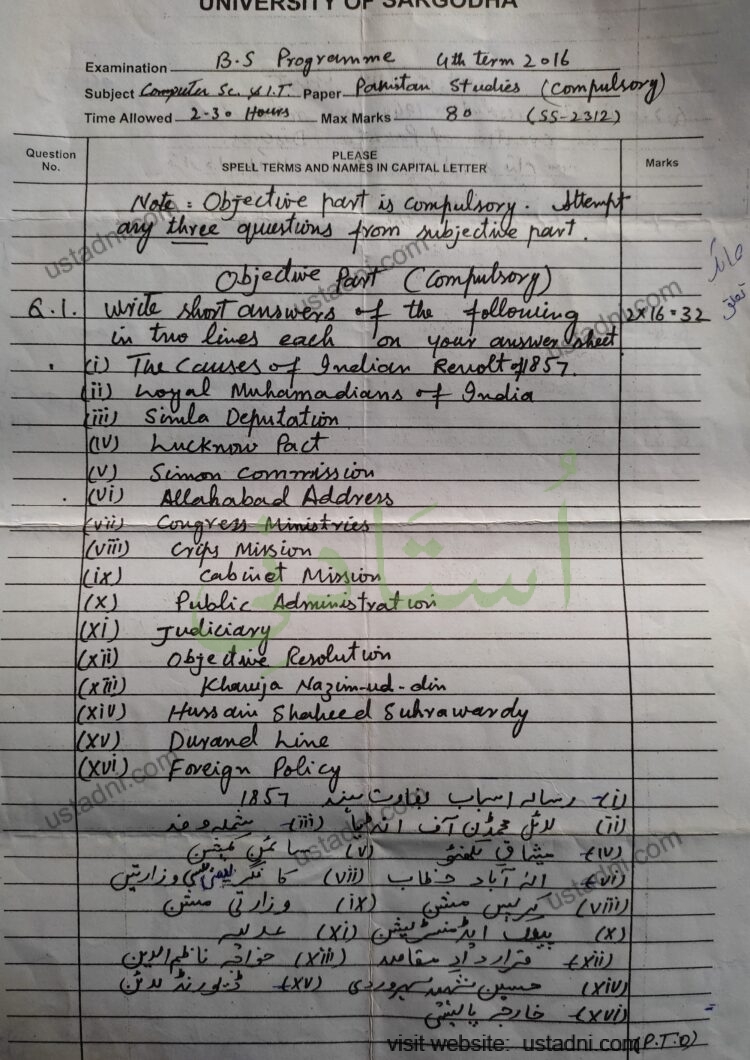 UNIVERSITY OF SARGODHA
Examination B.S Programme 4th term 2016
Subject Computer Sc. & I.T Paper Pakistan Studies (Compulsory)
Time Allowed 2-30 Hours Max Marks 80 (SS-2312)
Question No. PLEASE SPELL TERMS AND NAMES IN CAPITAL LETTER Marks
Note: Objective part is compulsory. Attempt
any three questions from subjective part.
Objective Part (Compulsory)
Q.1. Write short answers of the following 2x16=32
in two lines each on your answer sheet
(i) The Causes of Indian Revolt of 1857.
(ii) Loyal Muhamadians of India
(iii) Simla Deputation
(iv) Lucknow Pact
(v) Simon Commission
(vi) Allahabad Address
(vii) Congress Ministries
(viii) Crips Mission
(ix) Cabinet Mission
(x) Public Administration
(xi) Judiciary
(xii) Objective Resolution
(xiii) Khawja Nazim-ud-din
(xiv) Hussain Shaheed Suhrawardy
(xv) Durand Line
(xvi) Foreign Policy
(i) رسالہ اسباب بغاوت ہند 1857
(ii) لائل محمڈن آف انڈیا (iii) شملہ وفد
(iv) میثاق لکھنؤ (v) سائمن کمیشن
(vi) الہ آباد خطاب (vii) کانگریسی وزارتیں
(viii) کرپس مشن (ix) وزارتی مشن
(x) پبلک ایڈمنسٹریشن (xi) عدلیہ
(xii) قرارداد مقاصد (xiii) خواجہ ناظم الدین
(xiv) حسین شہید سہروردی (xv) ڈیورنڈ لائن
(xvi) خارجہ پالیسی
(P.T.O)
visit website: ustadni.com
استادنی
ustadni.com
ustadni.com
ustadni.com
ustadni.com
ustadni.com
ustadni.com